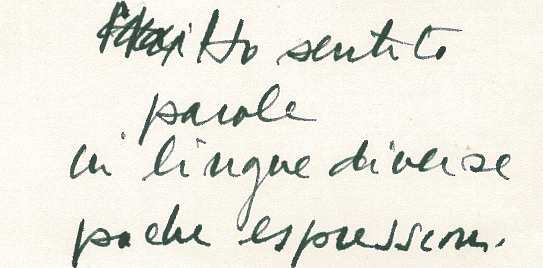 Ho sentito
parole
in lingue diverse
poche espressioni.